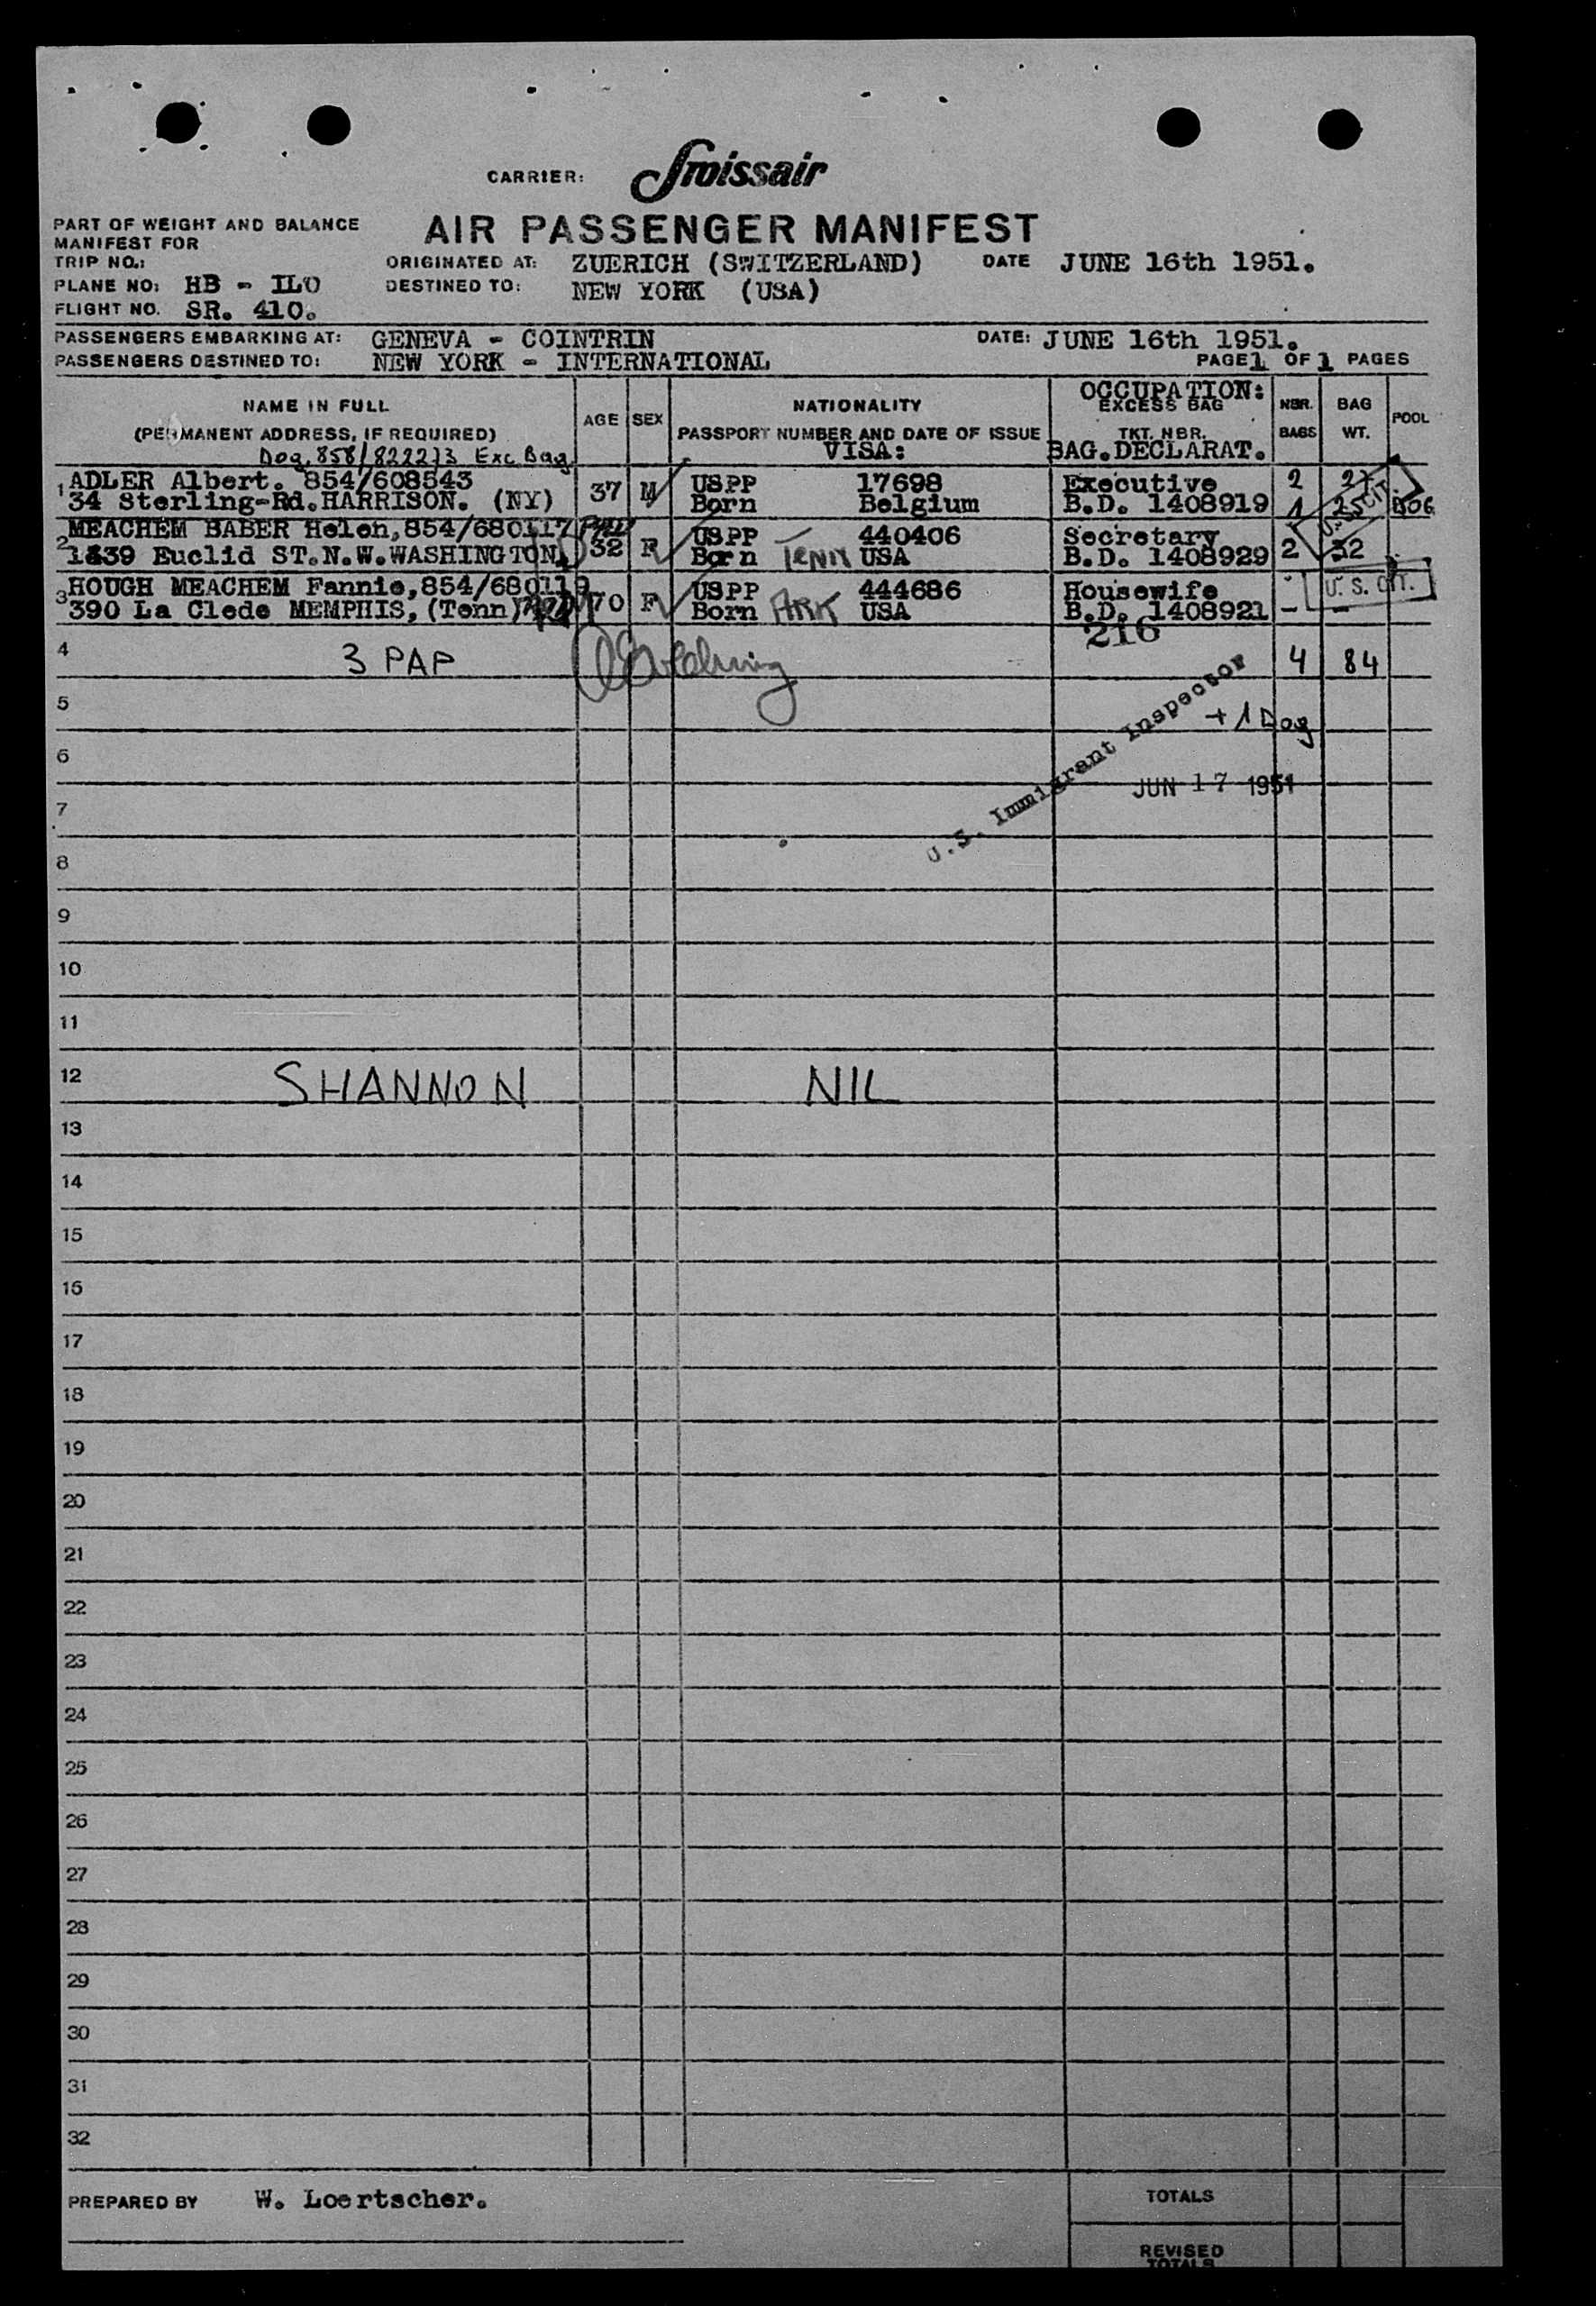 CARRIER: Swissair
PART OF WEIGHT AND BALANCE
MANIFEST FOR
AIR PASSENGER MANIFEST
TRIP NO.:
ORIGINATED AT: ZUERICH (SWITZERLAND) DATE JUNE 16th 1951.
PLANE NO: HB - ILO
DESTINED TO: NEW YORK (USA)
FLIGHT NO. SR. 410.
PASSENGERS EMBARKING AT: GENEVA - COINTRIN DATE: JUNE 16th 1951.
PASSENGERS DESTINED TO: NEW YORK - INTERNATIONAL PAGE 1 OF 1 PAGES
NAME IN FULL AGE SEX NATIONALITY OCCUPATION: EXCESS BAG NBR. BAGS BAG WT. POOL
(PERMANENT ADDRESS, IF REQUIRED) PASSPORT NUMBER AND DATE OF ISSUE TKT. NBR.
Dog 858/822213 Exc Bag VISA: BAG.DECLARAT.
1 ADLER Albert. 854/608543 37 M USPP 17698 Executive 2 27
34 Sterling-Rd.HARRISON. (NY) Born Belgium B.D. 1408919 1 25 DOG
U.S. CIT.
2 MEACHEM BABER Helen,854/680117 32 F USPP 440406 Secretary 2 32
1839 Euclid ST.N.W.WASHINGTON Born TENN USA B.D. 1408929
3 HOUGH MEACHEM Fannie,854/680119 70 F USPP 444686 Housewife - -
390 La Clede MEMPHIS,(Tenn) Born ARK USA B.D. 1408921
U. S. CIT.
216
4 3 PAP 4 84
5 + 1 Dog
U.S. Immigrant Inspector
6
JUN 17 1951
7
8
9
10
11
12 SHANNON NIL
13
14
15
16
17
18
19
20
21
22
23
24
25
26
27
28
29
30
31
32
PREPARED BY W. Loertscher.
TOTALS
REVISED
TOTALS